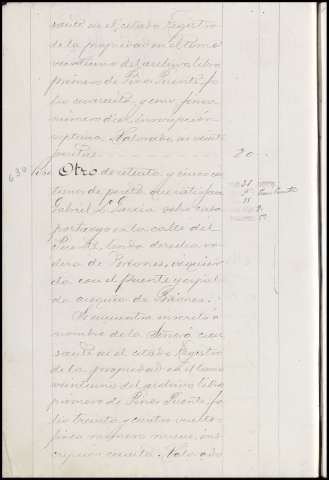 sante en el citado Registro
de la propiedad en el tomo
veintiuno del archivo libro
primero de Pinos Puente, fo
lio cuarenta y cinco finca
número diez, inscripción
septima. Valorado en veinte
pesetas 20
630 Otro de setenta y cinco cen
timos de peseta que satisface
Gabriel L. García sobre casa
por
en la calle del
Puente, linda derecha
de Briones, izquier
da con el puente y espal
da acequia de Baines.
Se encuentra inscrito a
nombre de la Señora cau
sante en el citado Registro
de la propiedad en el tomo
veintiuno del archivo libro
primero de Pinos Puente, fo
lio treinta y cuatro vuelto
finca número nueve, ins
cripción Valorado